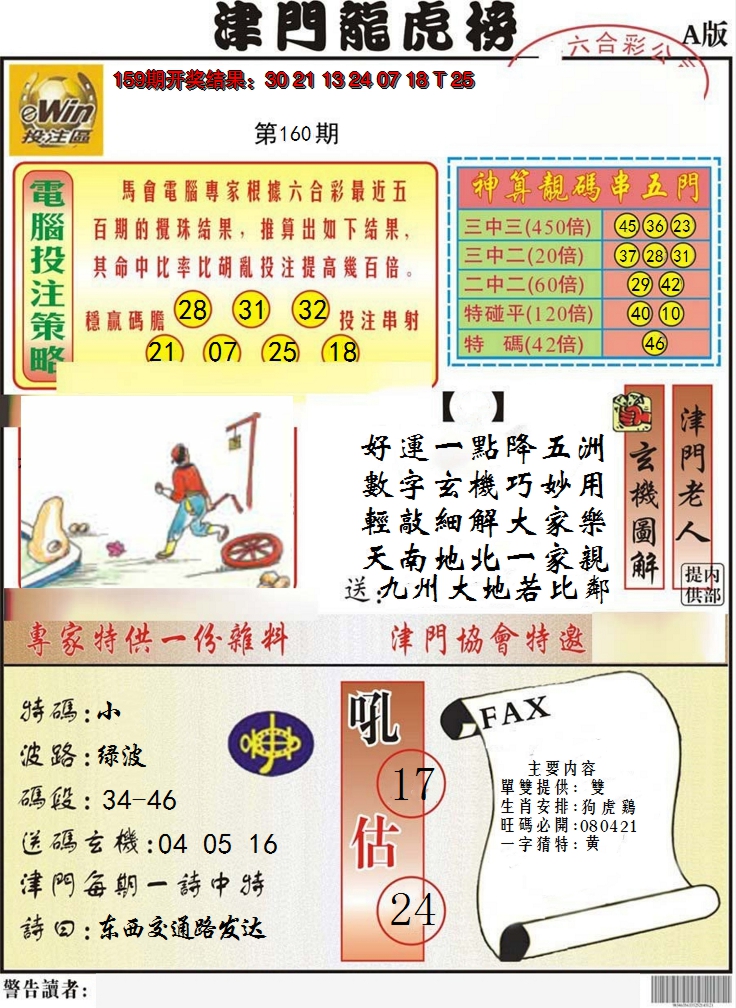 津門龍虎榜
A版
六合彩公
eWin
投注區
159期开奖结果：30 21 13 24 07 18 T 25
第160期
電腦投注策略
馬會電腦專家根據六合彩最近五
百期的攪珠结果，推算出如下结果，
其命中比率比胡亂投注提高幾百倍。
穩贏碼膽 28 31 32 投注串射
21 07 25 18
神算靚碼串五門
三中三(450倍) 45 36 23
三中二(20倍) 37 28 31
二中二(60倍) 29 42
特碰平(120倍) 40 10
特 碼(42倍) 46
【 】
好運一點降五洲
數字玄機巧妙用
輕敲細解大家樂
天南地北一家親
送：九州大地若比鄰
玄機圖解
津門老人
内部提供
專家特供一份雜料
津門協會特邀
特碼：小
波路：绿波
碼段：34-46
送碼玄機：04 05 16
津門每期一詩中特
詩曰：东西交通路发达
吼
17
估
24
FAX
主要内容
單雙提供：雙
生肖安排：狗虎鷄
旺碼必開：080421
一字猜特：黄
警告讀者：